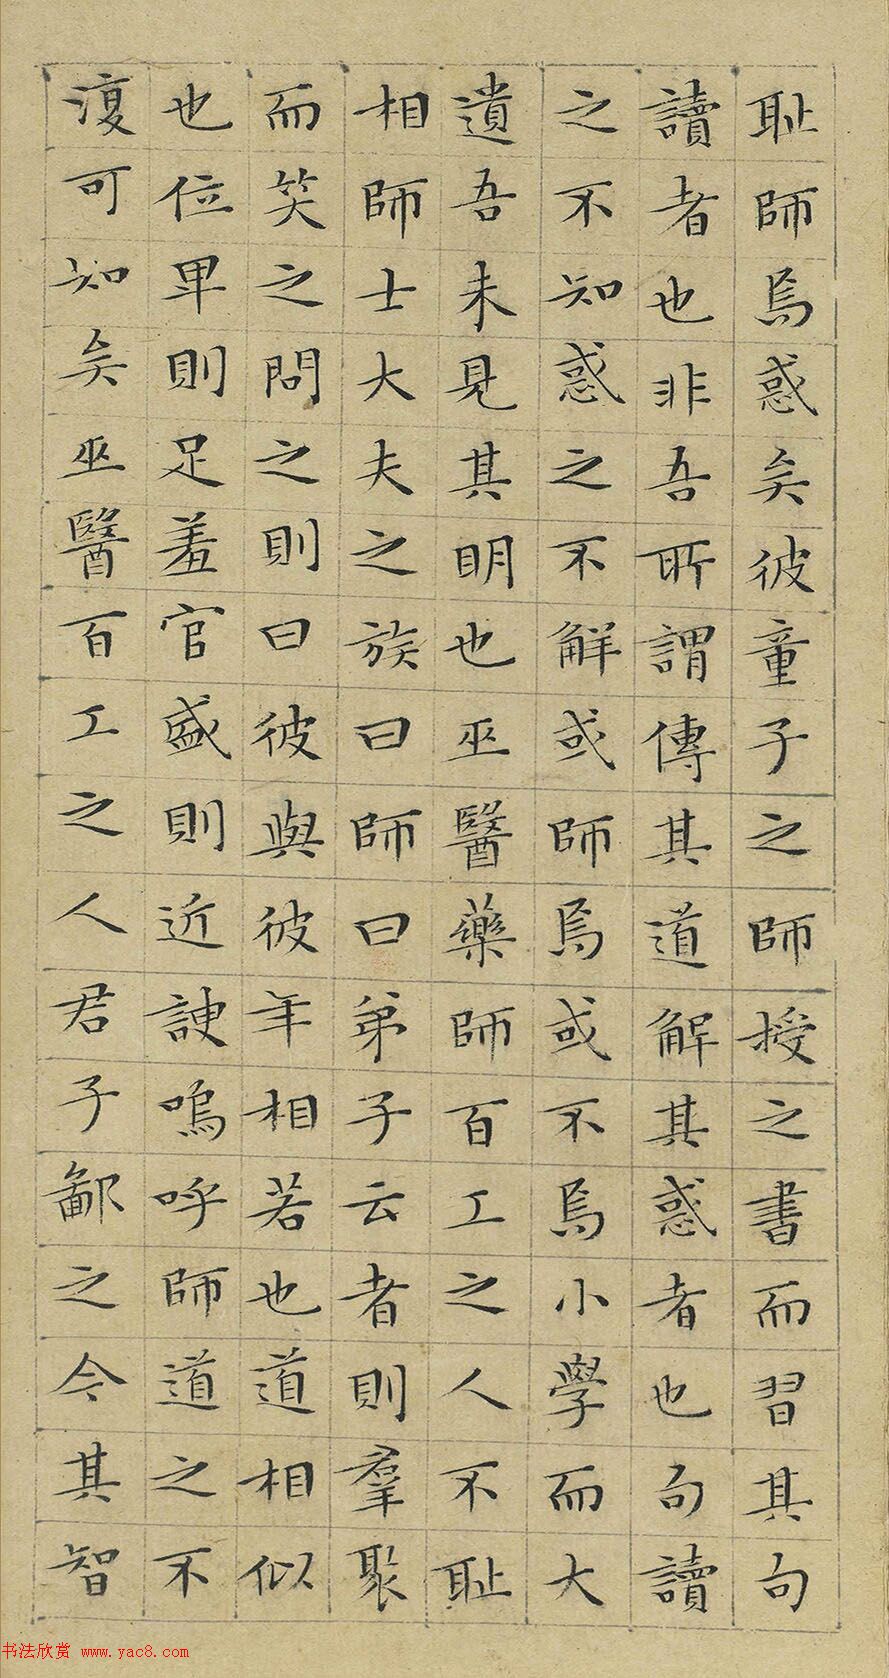 耻師焉惑矣彼童子之師授之書而習其句
讀者也非吾所謂傳其道解其惑者也句讀
之不知惑之不解或師焉或不焉小學而大
遺吾未見其明也巫醫藥師百工之人不耻
相師士大夫之族曰師曰弟子云者則羣聚
而笑之問之則曰彼與彼年相若也道相似
也位卑則足羞官盛則近諛嗚呼師道之不
復可知矣巫醫百工之人君子鄙之今其智
书法欣赏 www.yac8.com